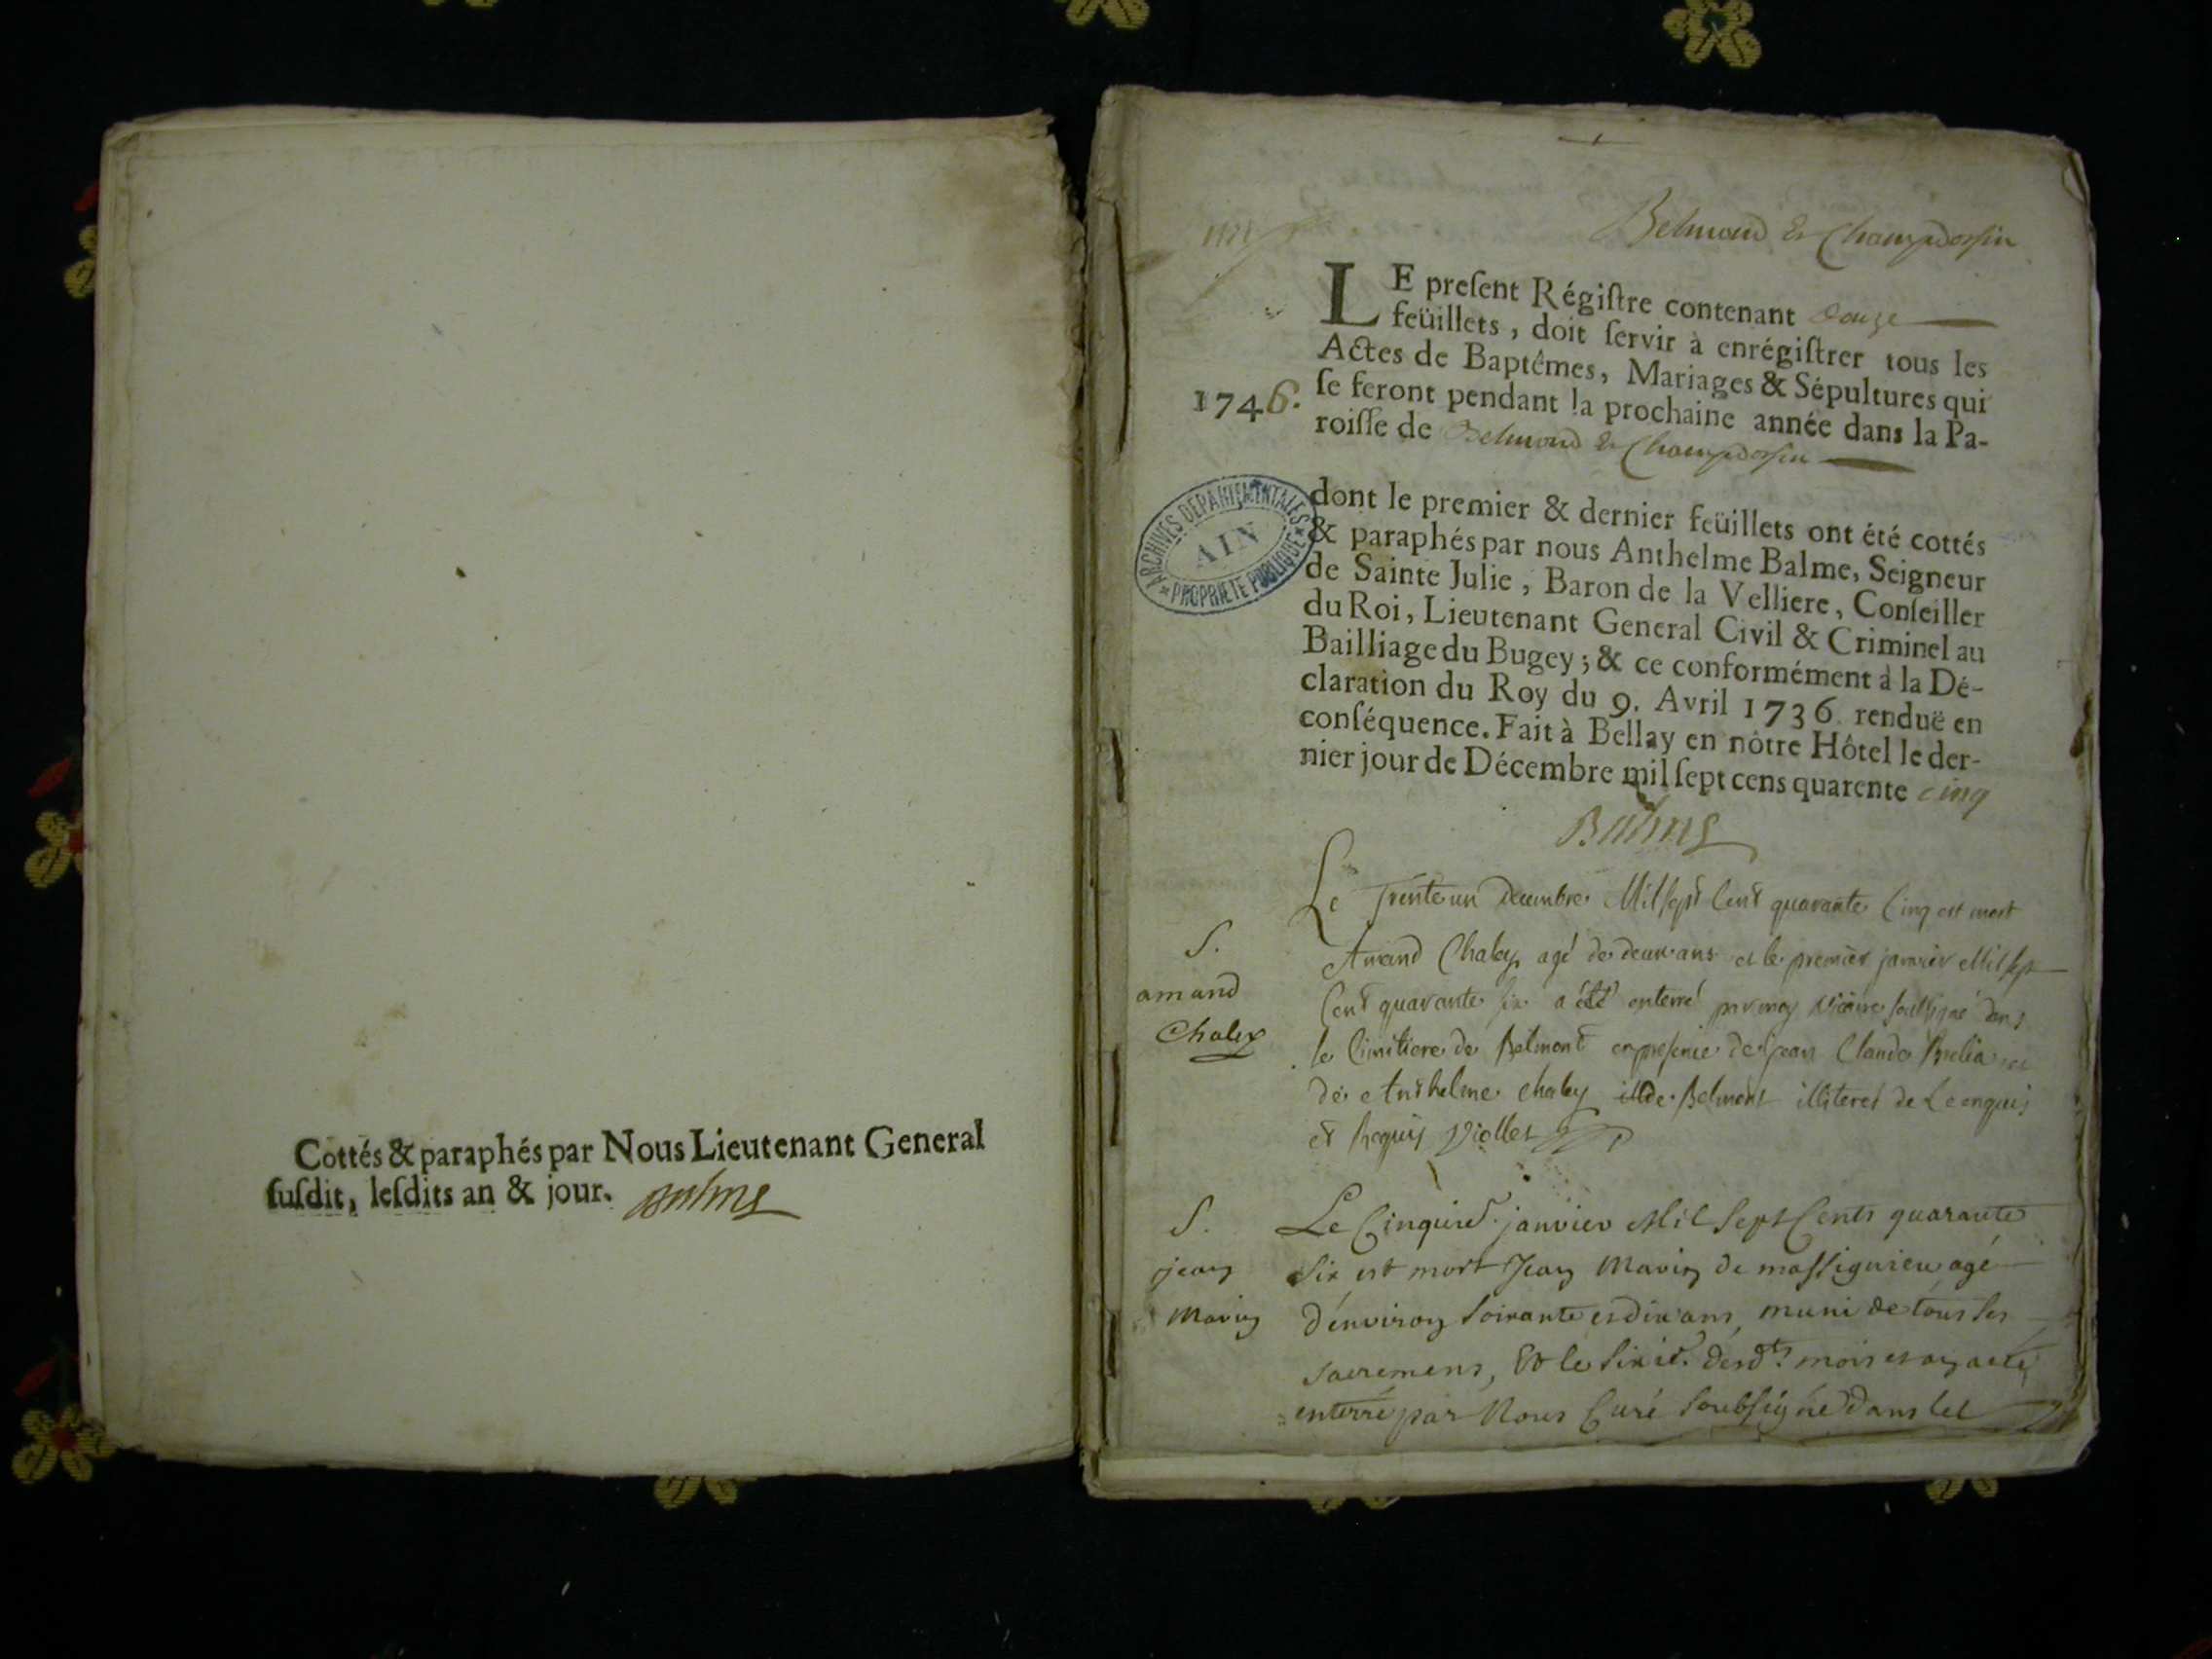 Cottés & paraphés par Nous Lieutenant General
ſuſdit, leſdits an & jour. Balme
Belmond & Champdossin
LE preſent Régiſtre contenant douze
feüillets, doit ſervir à enrégiſtrer tous les
Actes de Baptêmes, Mariages & Sépultures qui
1746. ſe feront pendant la prochaine année dans la Pa-
roiſſe de Belmond & Champdossin
ARCHIVES DEPARTEMENTALES
AIN
PROPRIETE PUBLIQUE
dont le premier & dernier feüillets ont été cottés
& paraphés par nous Anthelme Balme, Seigneur
de Sainte Julie, Baron de la Velliere, Conſeiller
du Roi, Lieutenant General Civil & Criminel au
Bailliage du Bugey; & ce conformément à la Dé-
claration du Roy du 9. Avril 1736. renduë en
conſéquence. Fait à Bellay en nôtre Hôtel le der-
nier jour de Décembre mil ſept cens quarente cinq
Balme
Le Trente un decembre Mil sept Cent quarante Cinq est mort
S.
amand
Chaley
Amand Chaley agé de deux ans et le premier janvier Mil sept
Cent quarante six a été enterré par moy vicaire soussigné dans
le Cimitiere de Belmont en presence de Jean Claude et
de Anthelme Chaley de Belmont illiteres de Ce enquis
et Requis Viollet
S.
jean
Mavin
Le Cinquie. janvier Mil Sept Cents quarante
Six est mort Jean Mavin de massignieu agé
d'environ soixante et dix ans, muni de tous ses
sacremens, Et le sixie. desdts. mois et an a eté
enterré par Nous Curé soubsigné dans le